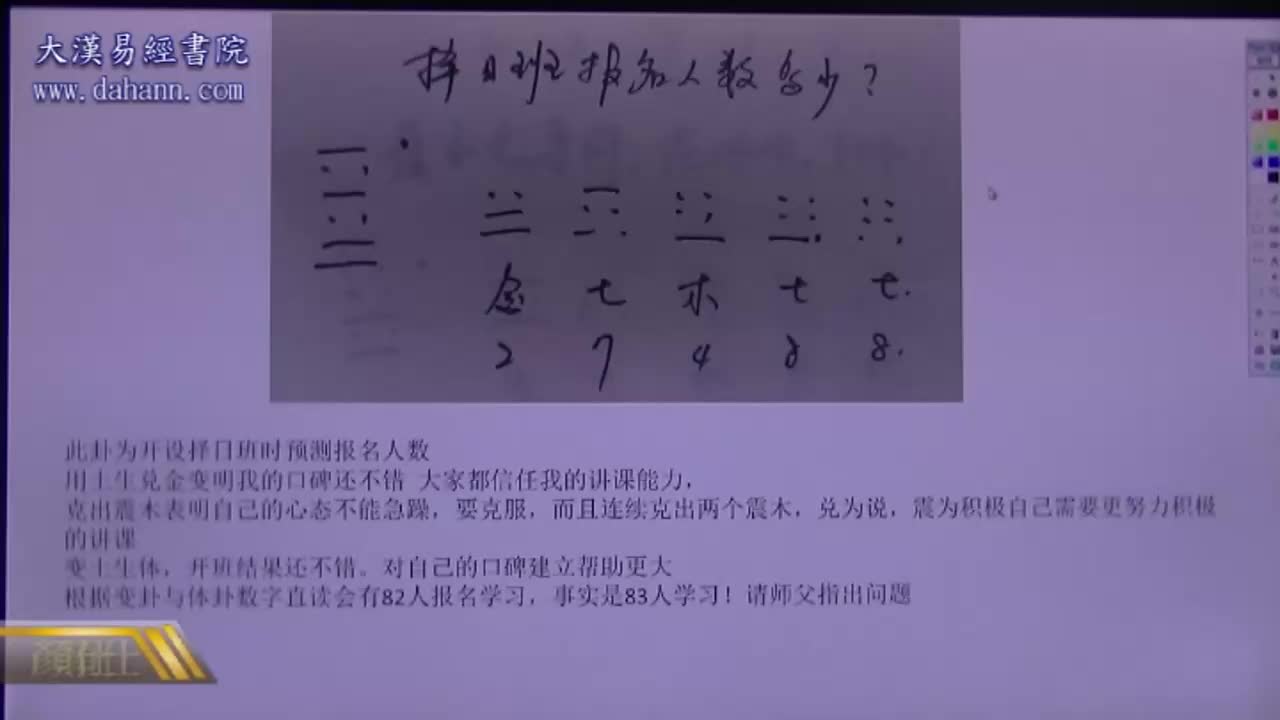 大漢易經書院
www.dahann.com
择日班报名人数多少？
金 七 木 七 七.
2 7 4 8 8.
此卦为开设择日班时预测报名人数
用土生兑金变明我的口碑还不错 大家都信任我的讲课能力，
克出震木表明自己的心态不能急躁，要克服，而且连续克出两个震木，兑为说，震为积极自己需要更努力积极
的讲课
变土生体，开班结果还不错。对自己的口碑建立帮助更大
根据变卦与体卦数字直读会有82人报名学习，事实是83人学习！请师父指出问题